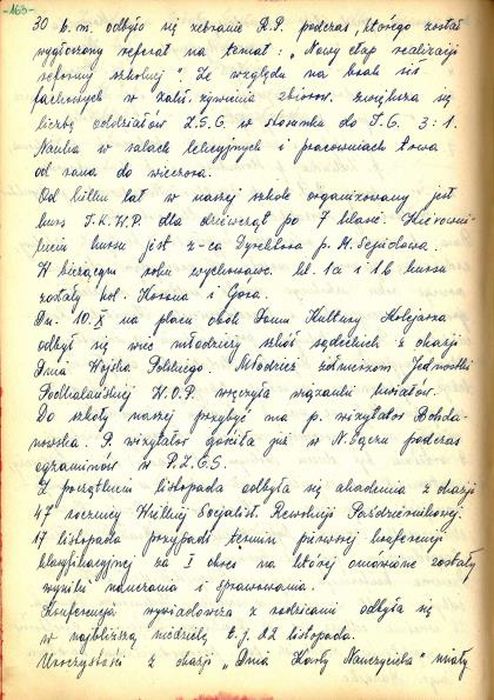 -163-
30 b.m. odbyło się zebranie R.P. podczas, którego został
wygłoszony referat na temat: „Nowy etap realizacji
reformy szkolnej". Ze względu na brak sił
fachowych w zakł. żywienia zbiorow. zwiększa się
liczbę oddziałów Z.S.G. w stosunku do T.G. 3:1.
Nauka w salach lekcyjnych i pracowniach trwa
od rana do wieczora.
Od kilku lat w naszej szkole organizowany jest
kurs T.K.W.P. dla dziewcząt po 7 klasie. Kierowni-
kiem kursu jest z-ca Dyrektora p. M.
W bieżącym roku wychowawc. kl. 1a i 1b kursu
zostały kol. Korona i Góra.
Dn. 10.X na placu obok Domu Kultury Kolejarza
odbył się wiec młodzieży szkół sądeckich z okazji
Dnia Wojska Polskiego. Młodzież żołnierzom Jednostki
Podhalańskiej W.O.P. wręczyła wiązanki kwiatów.
Do szkoły naszej przybyć ma p. wizytator Bohda-
nowska. P. wizytator gościła już w N.Sączu podczas
egzaminów w P.Z.G.S.
Z początkiem listopada odbyła się akademia z okazji
47 rocznicy Wielkiej Socjalist. Rewolucji Październikowej.
17 listopada przypadł termin pierwszej konferencji
klasyfikacyjnej za I okres na której omówione zostały
wyniki nauczania i sprawowania.
Konferencja wywiadowcza z rodzicami odbyła się
w najbliższą niedzielę t.j. 22 listopada.
Uroczystości z okazji „Dnia Karty Nauczyciela" miały